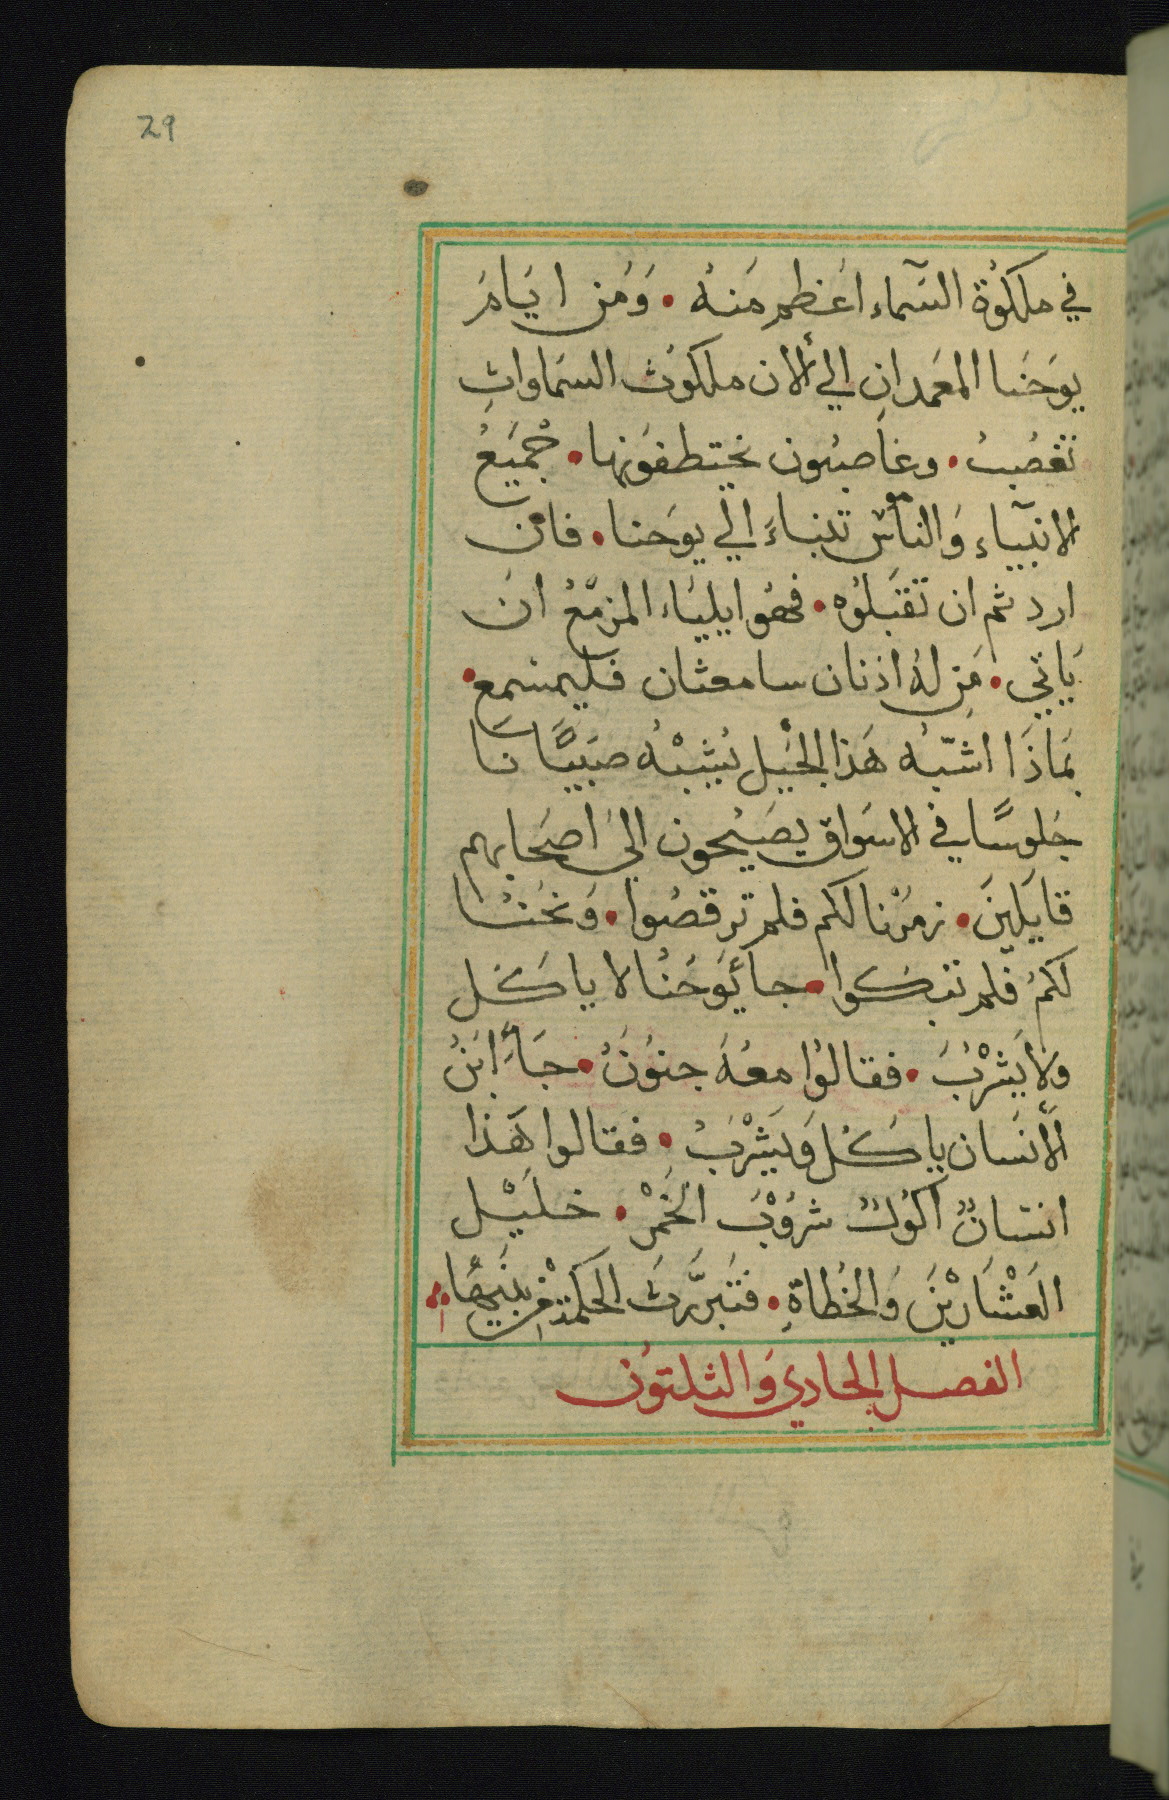 29
في ملكوُة السَماء اعَظم مَنهُ • وَمَن ايَامَ
يوَحَنا المعَمدانِ الي ألان ملكوُت السَماواتِ
تغصُبُ • وغاصبُون يختطفوَنها • جْميَعُ
الانبيآء وَالناس تنباءَ الَي يوَحنا • فانْ
اردثم ان تقبَلوُه • فهوُ ايليَاء المزمَعُ انَ
يَاتي • مَن لهُ اذنان سامعثان فليسمع •
بَماذَا اشبّهُ هَذا الجْيَل يُشبْهُ صبَيًانَا
جَلوسًا في الاسَواق يصَيُحون الىَ اصَحابهم
قايَلينَ • زمرُنا لكم فلم ترقصُوا • وَنحُنا
لكمُ فلم تبكوا • جا يَوَحَنُا لا ياكَل
ولاَ يَشْربُ • فقالوُا معَهُ جنوُنَ • جَاءَ ابَنُ
الأنَسان ياكَل وَيَشْربُ • فقالوا هَذا
انسَانٌ اكَوُلٌ شروُبْ الَخمْر • خليَل
العَشْاَريْنَ وَالخُطاةِ • فتَبرَّرتَ الحَكمَة مْن بنَيَها
الفصل الحادي وَالثلتوُن